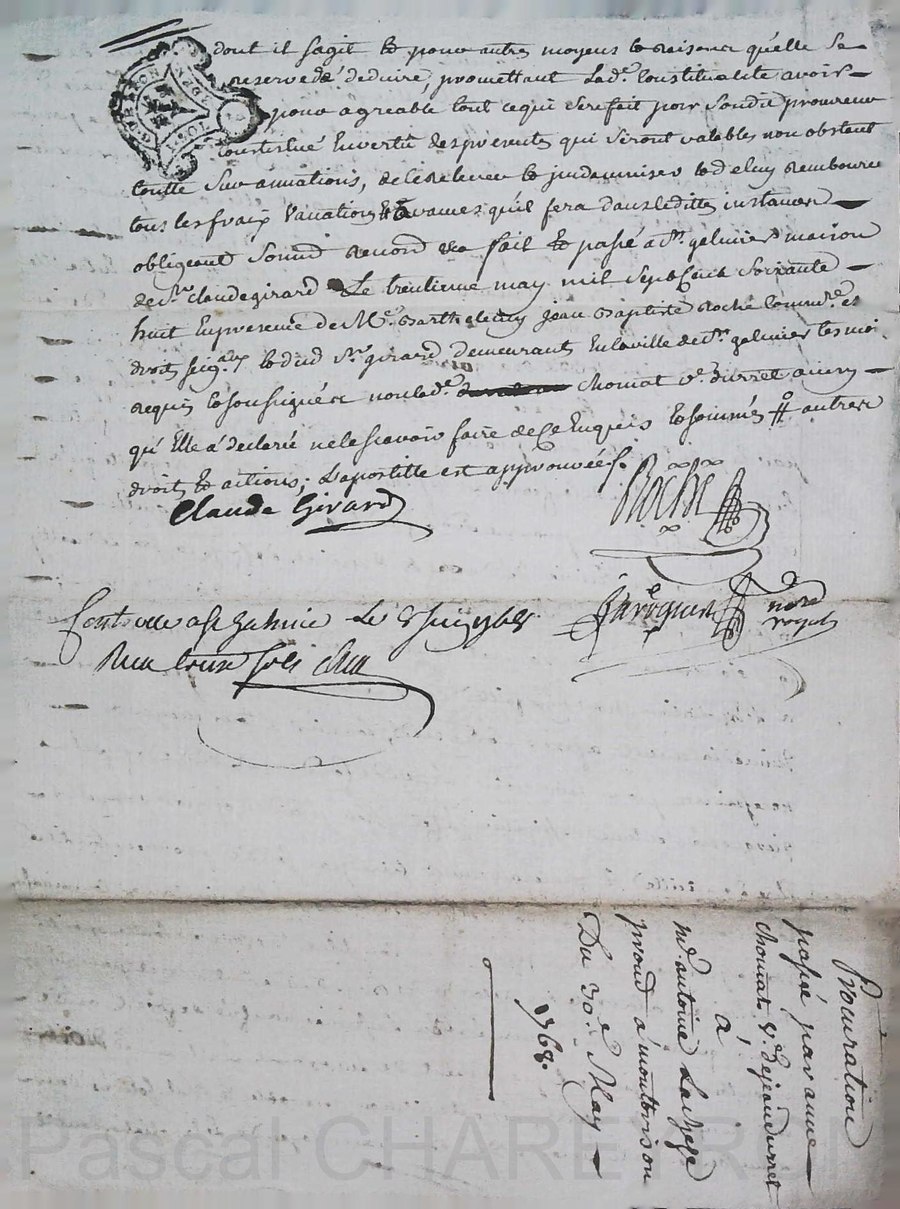 dont il sagit et pour autres moyens et raisons qu'elle se
reserve de deduire, promettant lad.e constituante avoir
pour agreable tout ce qui sera fait par sondit procureur
constitué en vertu des presentes qui seront valables non obstant
toutte surannations, de le relever et indamniser et de luy rembourcer
tous les fraix vacations et avances qu'il fera dans laditte instance
obligeant soumd renond &a fait et passé a St galmier maison
de Sr claude girard Le trentieme may mil sept cent soixante
huit En presence de Me Barthelemy jean Baptiste Roche comm.re es
droits seig.aux et dud Sr girard demeurants En la ville de St galmier tesmoi
requis et soussignés non lad.e chomat v.e durret
qu'Elle a declaré ne le scavoir faire de ce Enquis et sommés # autres
droits et actions; L'apostille est approuvée
Claude Girard
Roche
not.re royal
Controllé a St galmier Le 8 juin 1768
Procuration
passé par anne
chomat v.e de jean durret
a
m.e antoine
procur.d a montbrison
Du 30.e May
1768.
Pascal CHAREYRON